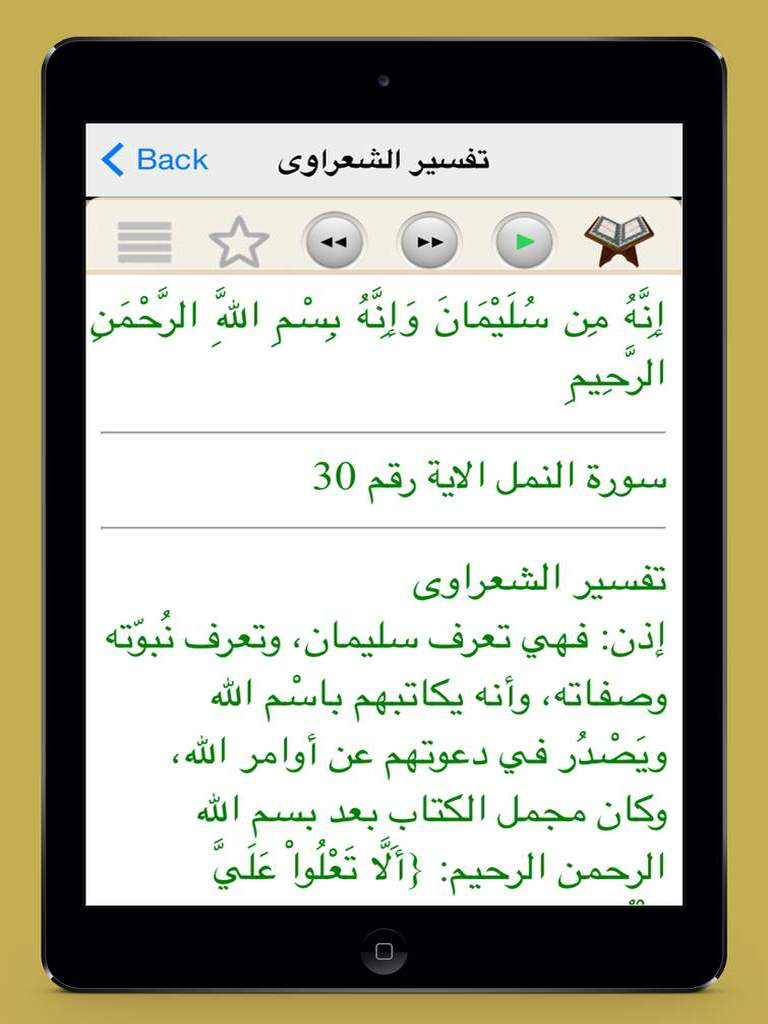 Back
تفسير الشعراوى
إِنَّهُ مِن سُلَيْمَانَ وَإِنَّهُ بِسْمِ اللَّهِ الرَّحْمَنِ
الرَّحِيمِ
سورة النمل الاية رقم 30
تفسير الشعراوى
إذن: فهي تعرف سليمان، وتعرف نُبوّته
وصفاته، وأنه يكاتبهم باسْم الله
ويَصْدُر في دعوتهم عن أوامر الله،
وكان مجمل الكتاب بعد بسم الله
الرحمن الرحيم: {أَلَّا تَعْلُواْ عَلَيَّ